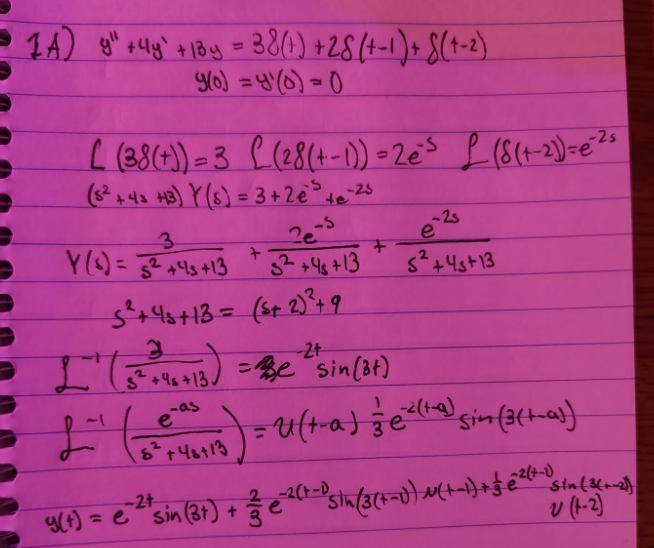 1A) y'' + 4y' + 13y = 3δ(t) + 2δ(t-1) + δ(t-2)
y(0) = y'(0) = 0
L(3δ(t)) = 3 L(2δ(t-1)) = 2e^{-s} L(δ(t-2)) = e^{-2s}
(s² + 4s + 13) Y(s) = 3 + 2e^{-s} + e^{-2s}
Y(s) = 3/(s² + 4s + 13) + 2e^{-s}/(s² + 4s + 13) + e^{-2s}/(s² + 4s + 13)
s² + 4s + 13 = (s + 2)² + 9
L^{-1}(3/(s² + 4s + 13)) = e^{-2t} sin(3t)
L^{-1}(e^{-as}/(s² + 4s + 13)) = u(t-a) 1/3 e^{-2(t-a)} sin(3(t-a))
y(t) = e^{-2t} sin(3t) + 2/3 e^{-2(t-1)} sin(3(t-1)) u(t-1) + 1/3 e^{-2(t-1)} sin(3(t-2))
u(t-2)